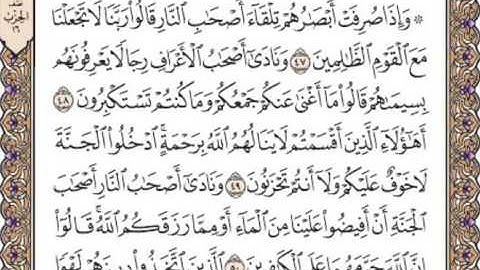 نصف
الحزب
١٦
۞ وَإِذَا صُرِفَتْ أَبْصَـٰرُهُمْ تِلْقَآءَ أَصْحَـٰبِ ٱلنَّارِ قَالُوا۟ رَبَّنَا لَا تَجْعَلْنَا
مَعَ ٱلْقَوْمِ ٱلظَّـٰلِمِينَ ٤٧ وَنَادَىٰٓ أَصْحَـٰبُ ٱلْأَعْرَافِ رِجَالًا يَعْرِفُونَهُم
بِسِيمَىٰهُمْ قَالُوا۟ مَآ أَغْنَىٰ عَنكُمْ جَمْعُكُمْ وَمَا كُنتُمْ تَسْتَكْبِرُونَ ٤٨
أَهَـٰٓؤُلَآءِ ٱلَّذِينَ أَقْسَمْتُمْ لَا يَنَالُهُمُ ٱللَّهُ بِرَحْمَةٍ ۚ ٱدْخُلُوا۟ ٱلْجَنَّةَ
لَا خَوْفٌ عَلَيْكُمْ وَلَآ أَنتُمْ تَحْزَنُونَ ٤٩ وَنَادَىٰٓ أَصْحَـٰبُ ٱلنَّارِ أَصْحَـٰبَ
ٱلْجَنَّةِ أَنْ أَفِيضُوا۟ عَلَيْنَا مِنَ ٱلْمَآءِ أَوْ مِمَّا رَزَقَكُمُ ٱللَّهُ ۚ قَالُوٓا۟
إِنَّ ٱللَّهَ حَرَّمَهُمَا عَلَى ٱلْكَـٰفِرِينَ ٥٠ ٱلَّذِينَ ٱتَّخَذُوا۟ دِينَهُمْ لَهْوًا